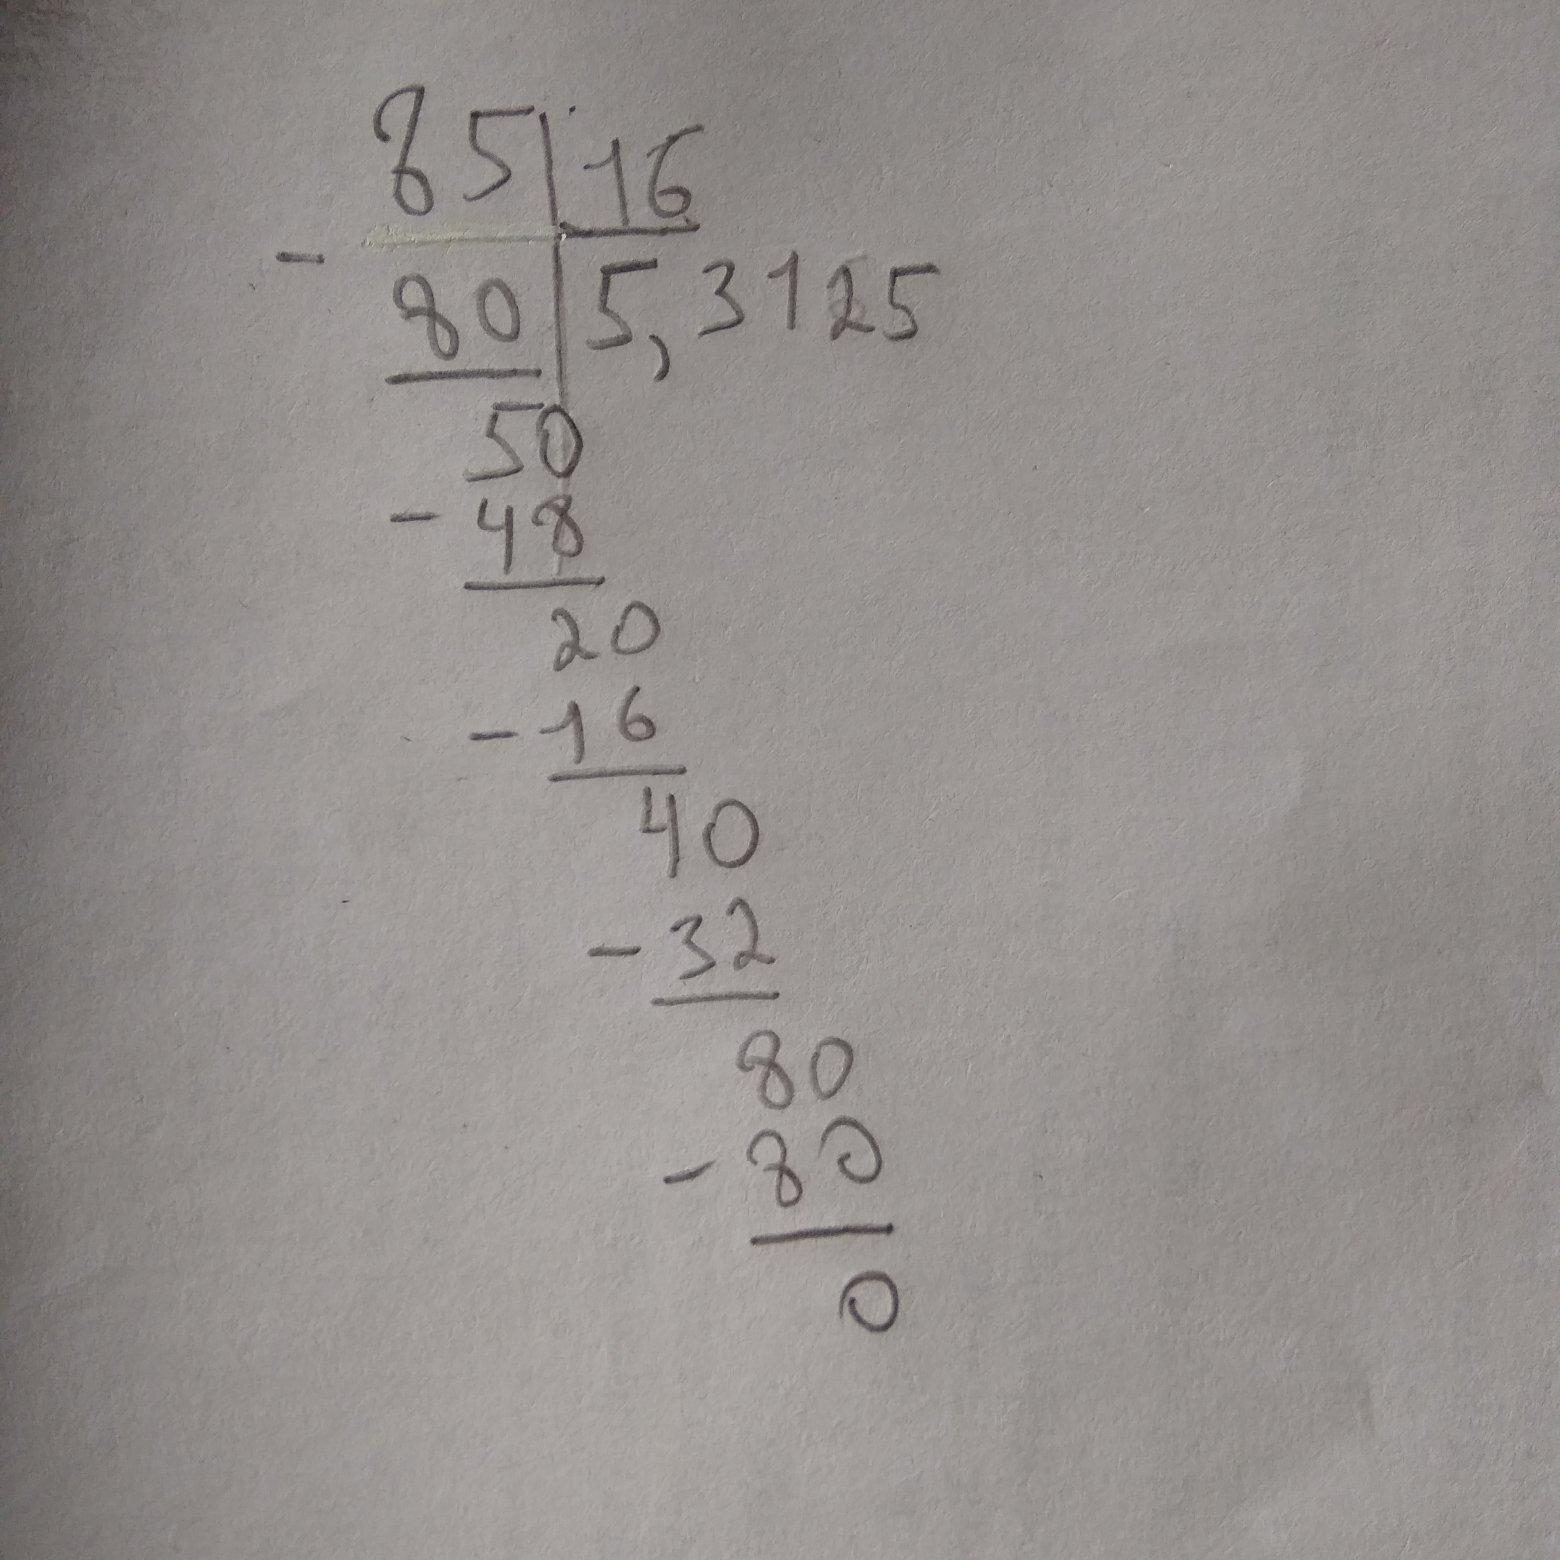 85 16
- 80 5,3125
50
- 48
20
- 16
40
- 32
80
- 80
0